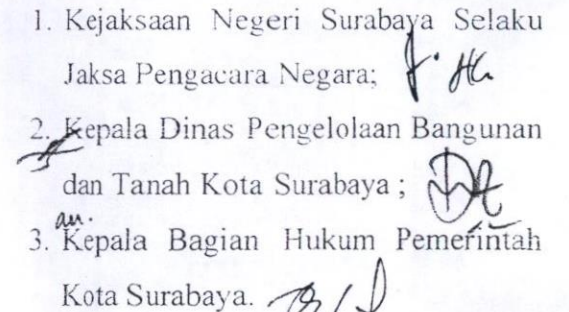 1. Kejaksaan Negeri Surabaya Selaku
Jaksa Pengacara Negara;
2. Kepala Dinas Pengelolaan Bangunan
dan Tanah Kota Surabaya ;
an.
3. Kepala Bagian Hukum Pemerintah
Kota Surabaya.